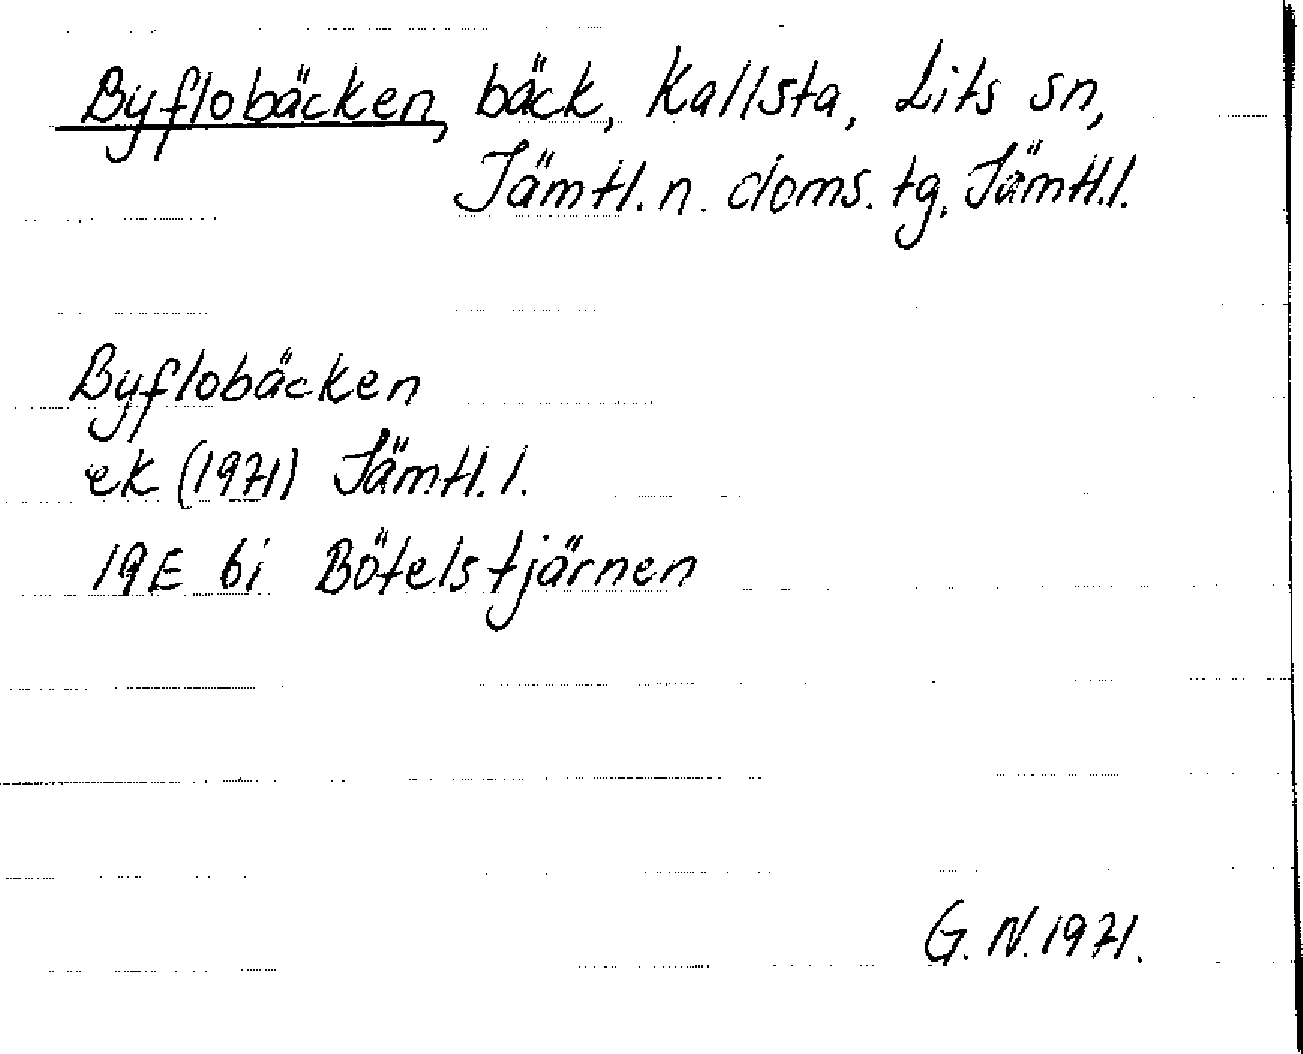 Byflobäcken, bäck, Kallsta, Lits sn,
Jämtl. n. doms. tg. Jämtl.l.
Byflobäcken
ek (1971) Jämtl. l.
19E 6i Bötelstjärnen
G. N. 1971.